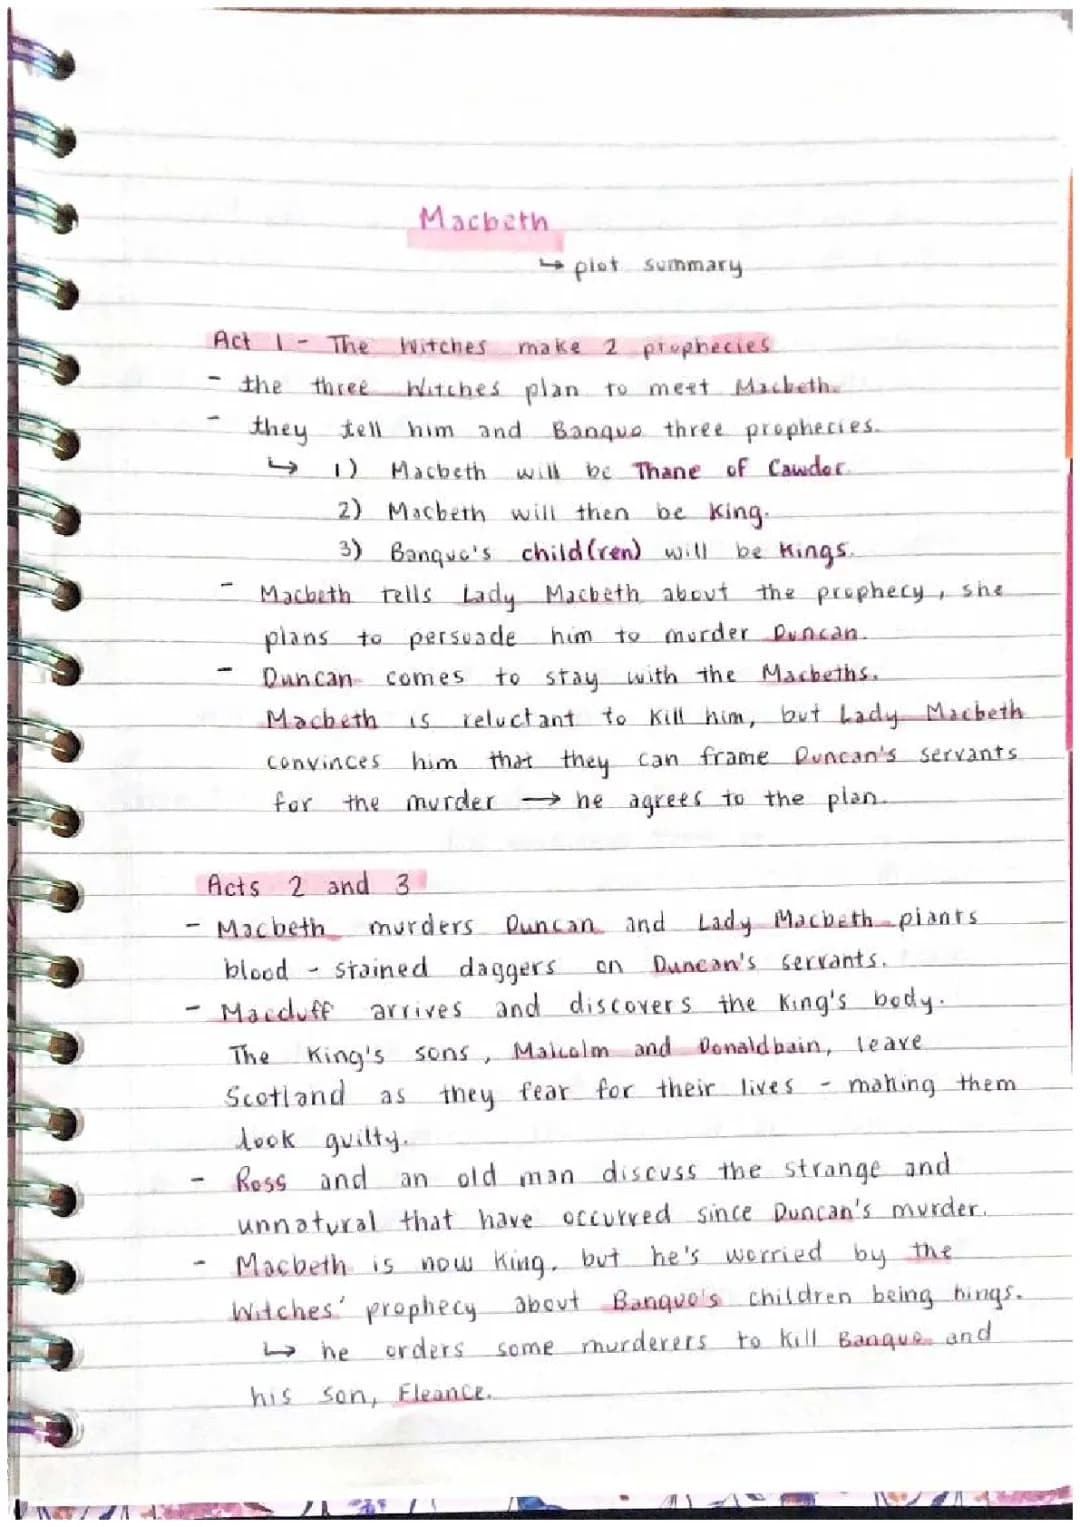 Macbeth
↳ plot summary
Act 1 - The Witches make 2 prophecies
- the three Witches plan to meet Macbeth.
- they tell him and Banquo three prophecies.
↳ 1) Macbeth will be Thane of Cawdor.
2) Macbeth will then be King.
3) Banquo's child(ren) will be Kings.
- Macbeth tells Lady Macbeth about the prophecy, she
plans to persuade him to murder Duncan.
- Duncan comes to stay with the Macbeths.
Macbeth is reluctant to kill him, but Lady Macbeth
convinces him that they can frame Duncan's servants
for the murder → he agrees to the plan.
Acts 2 and 3
- Macbeth murders Duncan and Lady Macbeth plants
blood - stained daggers on Duncan's servants.
- Macduff arrives and discovers the King's body.
The King's sons, Malcolm and Donaldbain, leave
Scotland as they fear for their lives - making them
look guilty.
- Ross and an old man discuss the strange and
unnatural that have occurred since Duncan's murder.
- Macbeth is now King, but he's worried by the
Witches' prophecy about Banquo's children being kings.
↳ he orders some murderers to kill Banquo and
his son, Fleance.